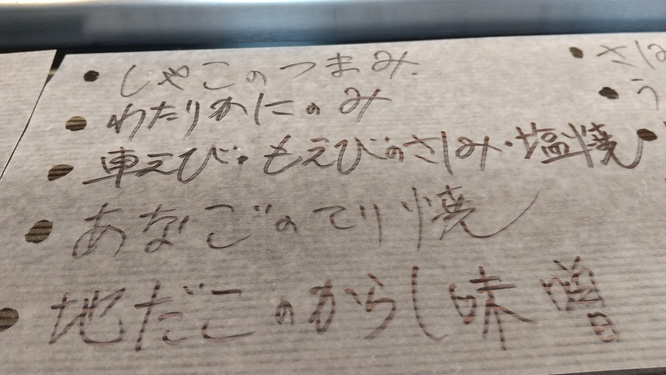 しゃこのつまみ.
わたりかにのみ
車えび・もえびのさしみ・塩焼
あなごのてり焼
地だこのからし味噌
さしみ
う